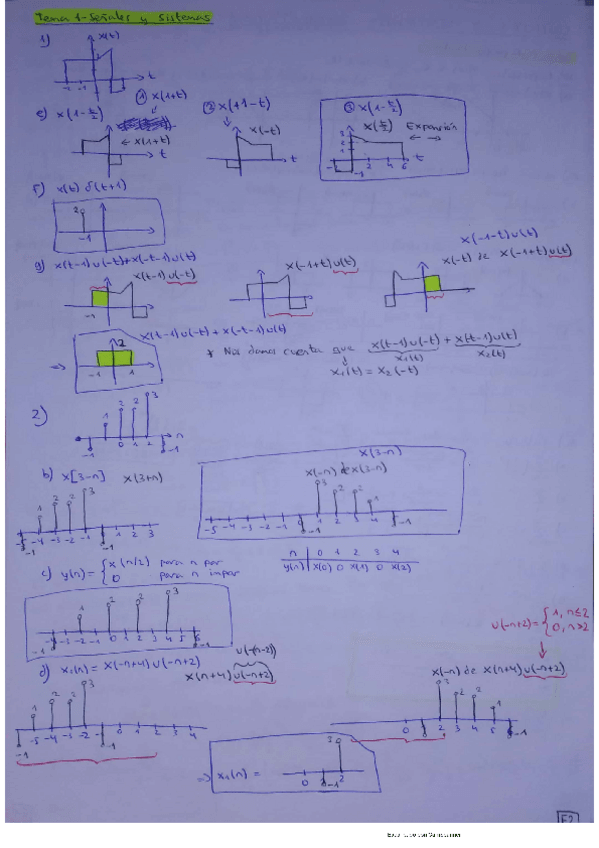 Tema 1- Señales y sistemas
1) x(t)
t
e) x(1-t/2) ① x(1+t) ② x(1-t) ③ x(1-t/2)
← x(1+t) x(-t) x(t/2) Expansión
t t t
-2 2 4 6
f) x(t) δ(t+1)
2
-1
g) x(t-1)u(-t)+x(-t-1)u(t) x(-1-t)u(t)
x(t-1)u(-t) x(-1+t)u(t) x(-t) de x(-1+t)u(t)
-1
x(t-1)u(-t) + x(-t-1)u(t)
⇒ 2 * Nos damos cuenta que x(t-1)u(-t) + x(-t-1)u(t)
-1 1 x₁(t) x₂(t)
x₁(t) = x₂(-t)
2) 1 2 2 3
-1 0 1 2 -1 n
b) x[3-n] x(3+n) x(3-n)
x(-n) de x(3-n)
1 2 2 3 3 2 2 1
-5 -4 -3 -2 -1 1 2 3 -5 -4 -3 -2 -1 0 1 2 3 4
-1 -1 -1 -1
c) y(n) = { x(n/2) para n par n 0 1 2 3 4
0 para n impar y(n) x(0) 0 x(1) 0 x(2)
1 2 2 3
-1 -3 -2 -1 0 1 2 3 4 5 6 -1
u(-n+2) = { 1, n≤2
0, n>2
u(-(n-2))
d) x₁(n) = x(-n+4)u(-n+2)
x(n+4)u(-n+2) x(-n) de x(n+4)u(-n+2)
1 2 2 3 3 2 2 1
-5 -4 -3 -2 0 1 2 3 4 0 2 3 4 5
-1 -1 -1
⇒ x₁(n) = 3
0 -1 2
E2